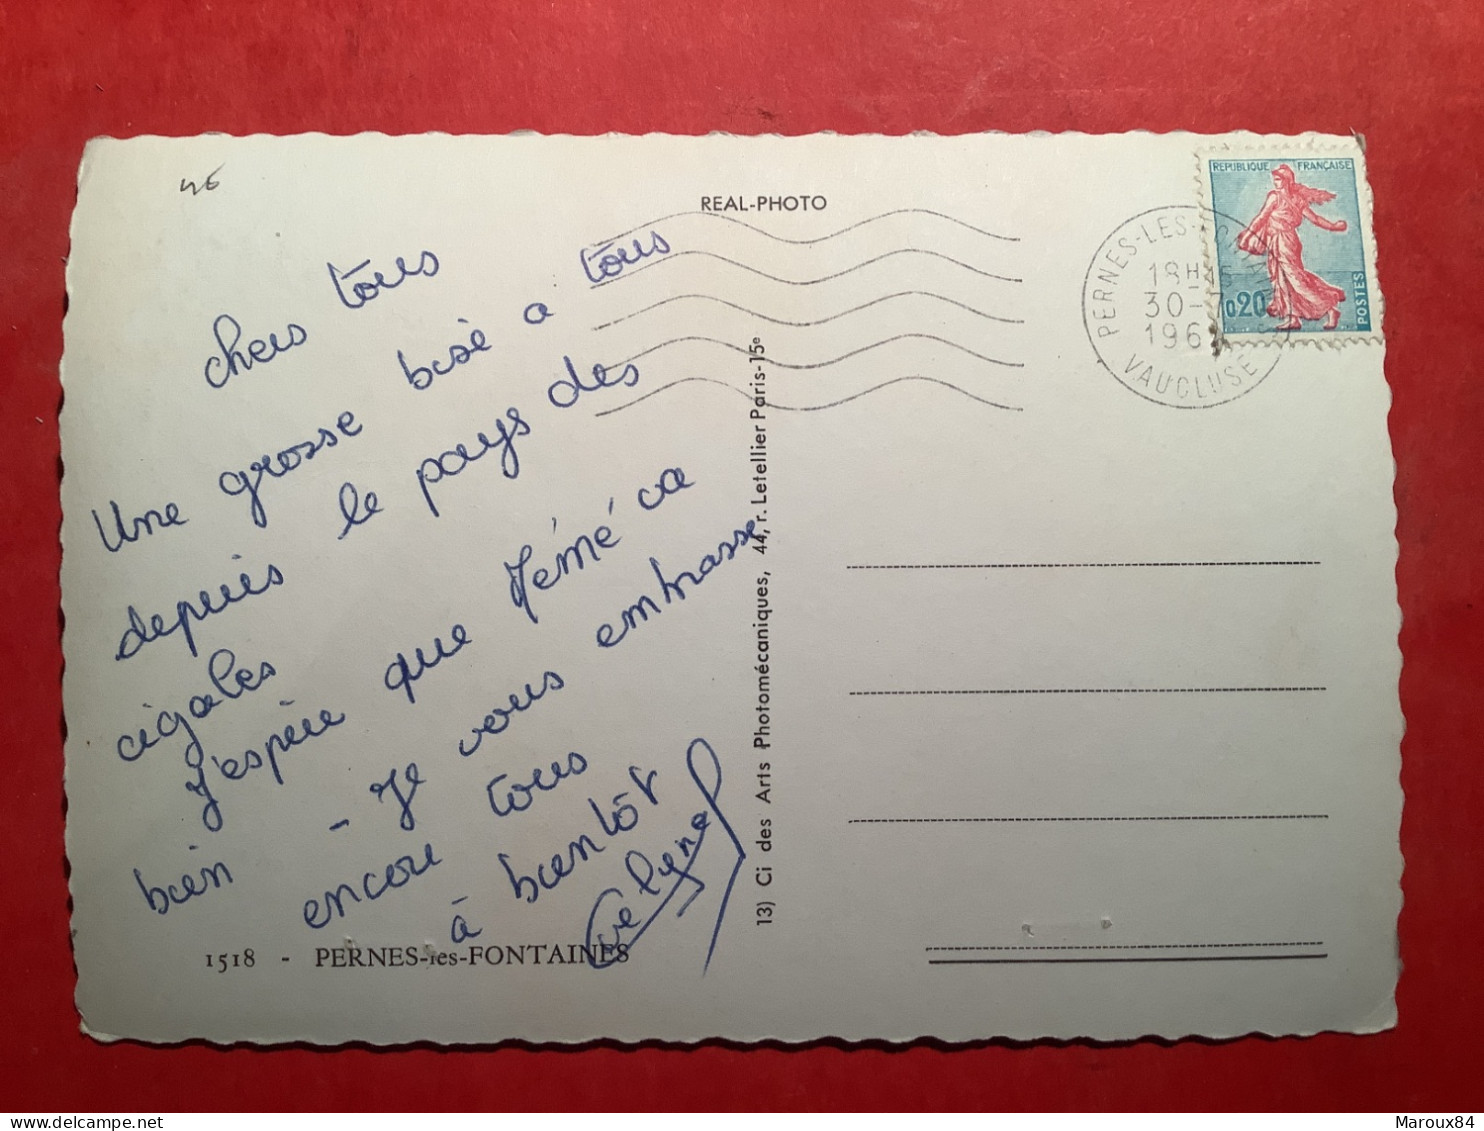 46
REAL-PHOTO
REPUBLIQUE FRANÇAISE
0,20
POSTES
PERNES-LES-FONTAINES
18H
30-
196
VAUCLUSE
chers tous
Une grosse bise a tous
depuis le pays des
cigales
J'espère que Mémé va
bien - Je vous embrasse
encore tous
à bientôt
Evelyne
1518 - PERNES-les-FONTAINES
13) Ci des Arts Photomécaniques, 44, r. Letellier Paris-15e
Maroux84